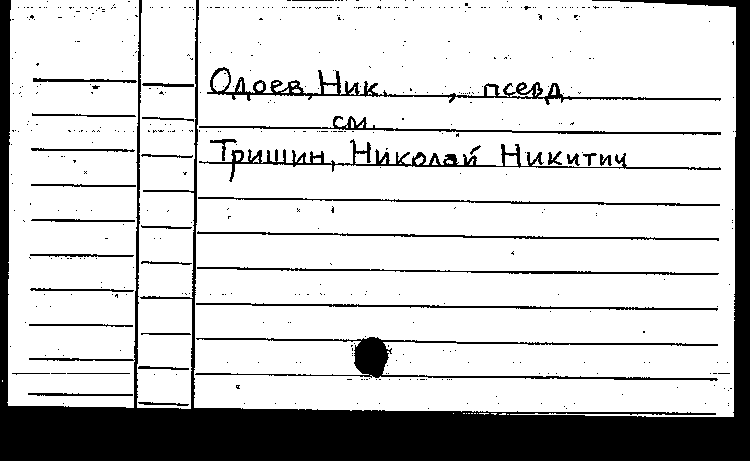 Одоев, Ник. , псевд.
см.
Тришин, Николай Никитич